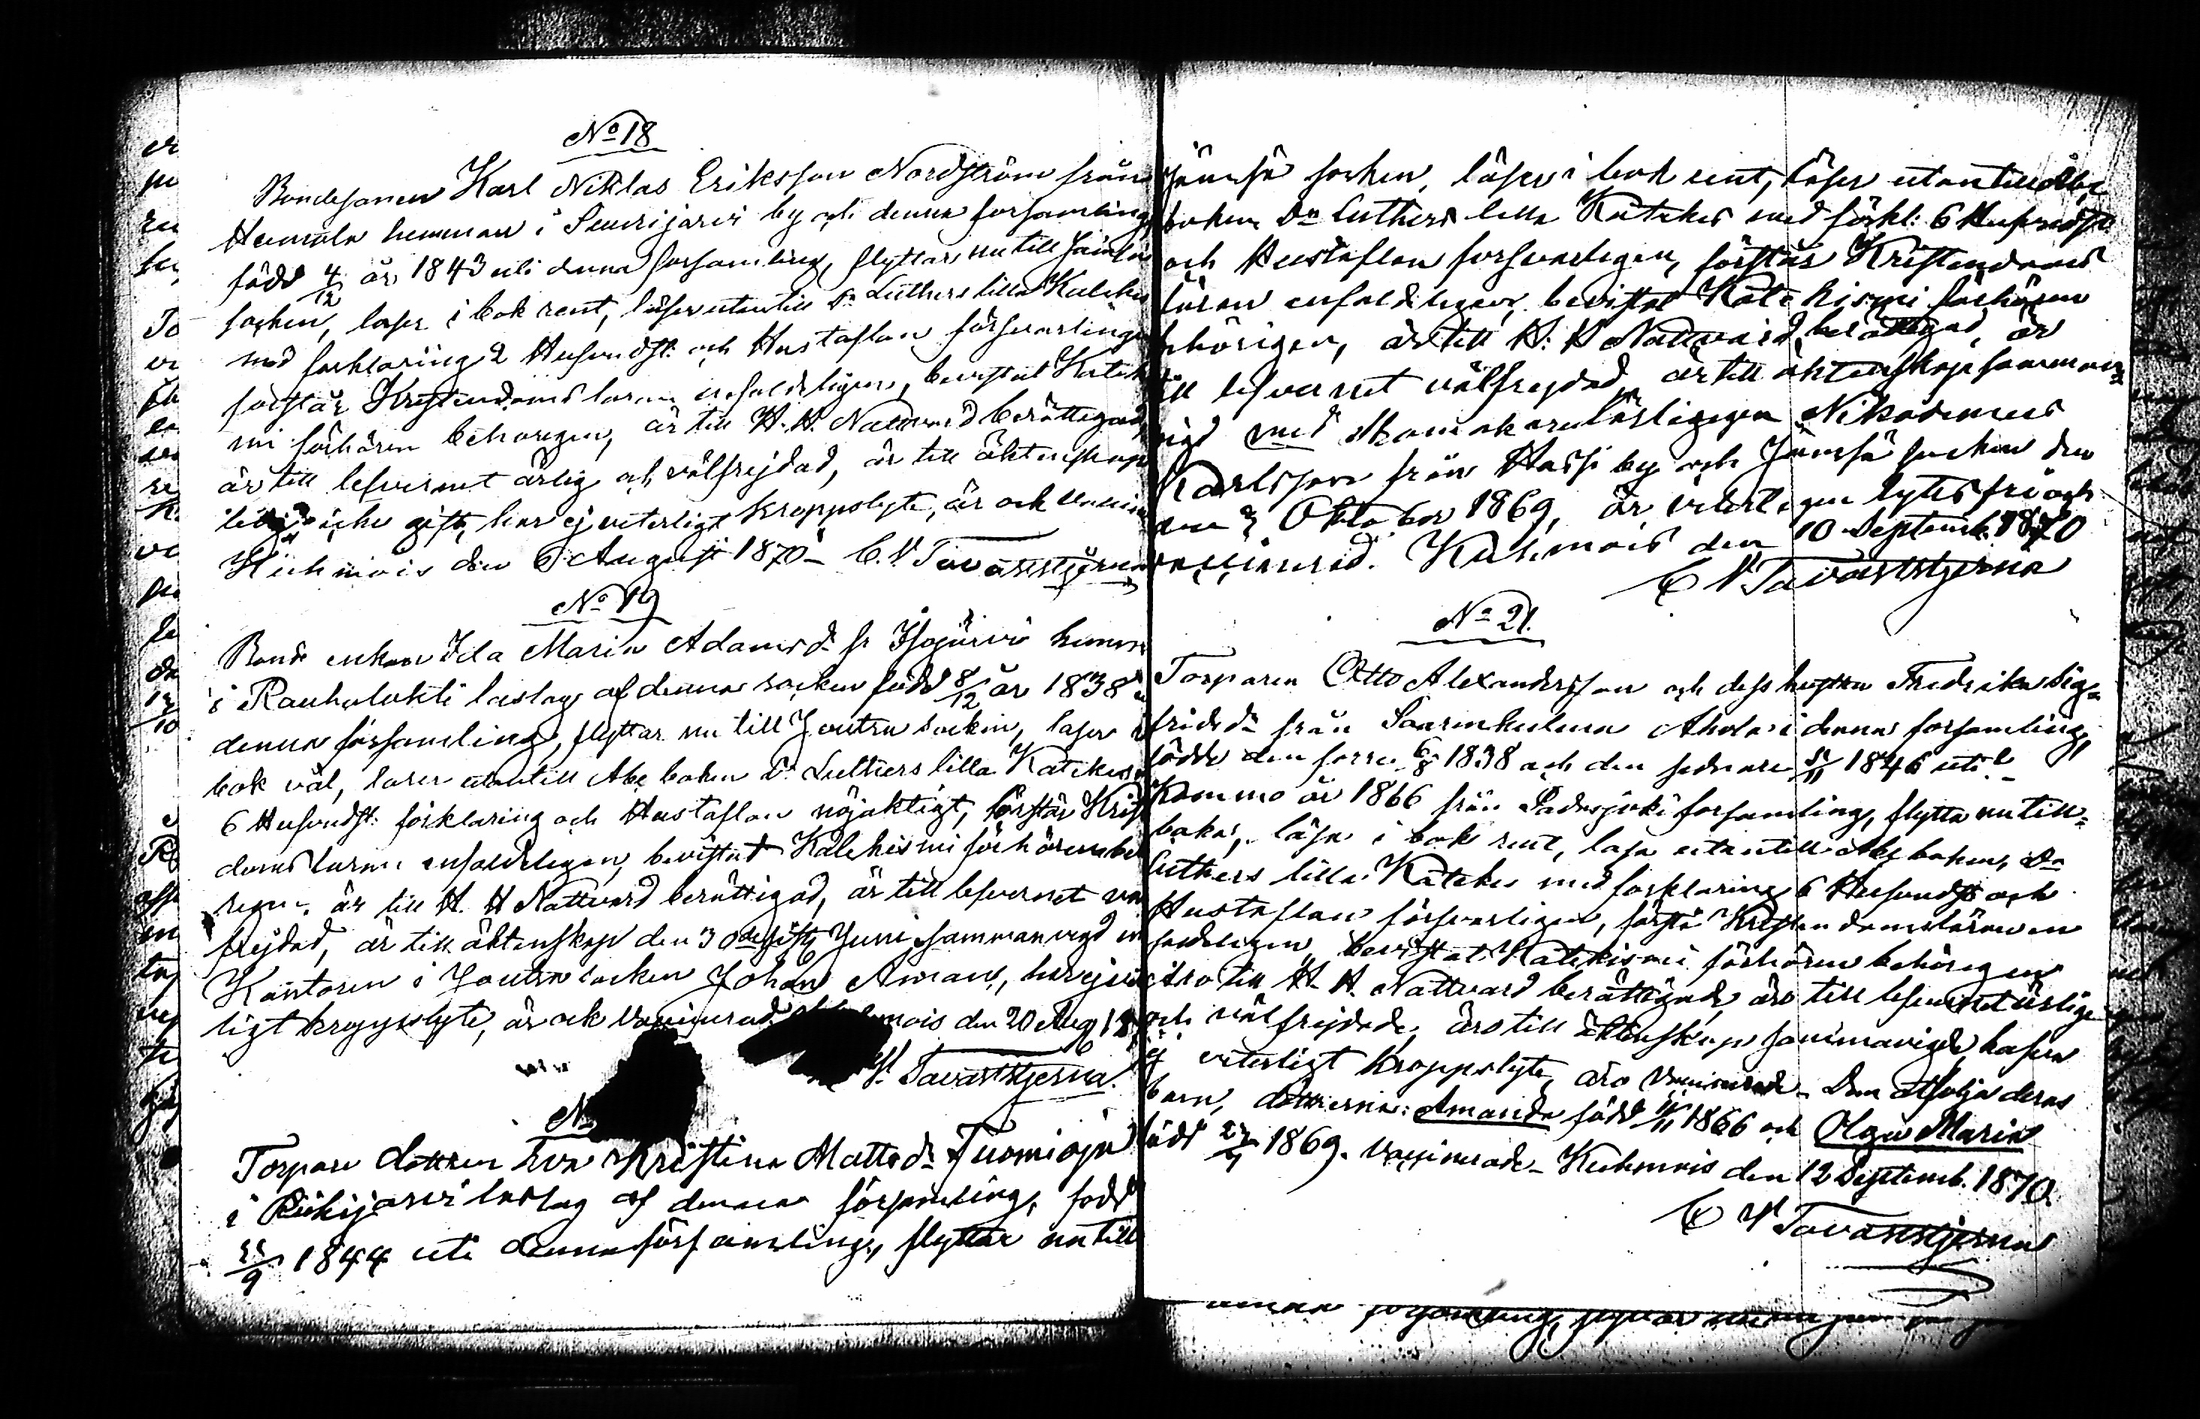 No 18
Bondesonen Karl Niklas Eriksson Nordström från
Heimola hemman i Saarijärvi by och denna forsamling
född 4/12 år 1843 uti denna forsamling, flyttar nu till Jämsä
socken, laser i bok rent, läser utantill Dr Luthers lilla Kateches
med forklaring 2 Hufvudst: och Hustaflan försvarligen
forstår Kristendoms laran enfaldeligen, bevistat Katekis
mi förhören behorigen, är till H. H. Nattvard berättigad,
är till lefvernet ärlig och välfrejdad, är till äktenskap
ledig icke gift, har ej veterligt kroppslyte, är och vaccin
Kuhmois den 6 August 1870 – C. V. Tavaststjerna
No 19
Bonde enkan Ida Maria Adamsdr fr Isojärvi hemm
i Rauhalahti laslag af denna socken född 8/12 år 1838 i
denna församling, flyttar nu till Joutsa socken, laser i
bok väl, laser utantill Abc boken Dr Luthers lilla Katekes
6 Hufvudst: förklaring och Hustaflan nöjaktigt, förstår Krist
doms laran enfaldeligen, bevistat Katekismi förhören beho
rigen, är till H. H Nattvard berättigad, är till lefvernet väl
frejdad, är till äktenskap den 30de sistl. Juni sammanvigd m
Kantoren i Joutsa socken Johan Aman, har ej veter
ligt kroppslyte, är och vaccinerad. mois den 20 Aug 18
V. Tavaststjerna.
N
Torpare dottren Eva Kristina Mattsdr Tuomioja
i Riihijärvi laslag af denna församling, född
/9 1844 uti denna församling, flyttar nu till
Jämsä socken, läser i bok rent, läser utantill Abc
boken Dr Luthers lilla Katekes med förkl: 6 Hufvudst
och Hustaflan forsvarligen, förstår Kristendoms
läran enfaldligen, bevistat Katekismi förhören
behörigen, är till H. H Nattvard berättigad, är
till lefvernet välfrejdad, är till äktenskap samman
vigd med Nikodemus
Karlsson från Hassi by och Jämsä socken den
Oktober 1869, är veterligen lytes fri och
vaccinerad. Kuhmois den 10 Septemb. 1870
C V Tavaststjerna
No 21.
Torparen Otto Alexandersson och dess hustru Fredrika Sig=
fridsdr från Saarenkulma Ahola i denna forsamling,
födde den forre 6/8 1838 och den sednare /11 1846 uti
Kommo år 1866 från Padasjoki forsamling, flytta nu till=
baka, läsa i bok rent, lasa utantill Abc boken, Dr
Luthers lilla Katekes med forklaring 6 Hufvudst och
Hustaflan försvarligen, förstå Kristendomsläran en
faldeligen, bevistat Katekismi förhören behörigen
äro till H. H. Nattvard berättigade, äro till lefvernet ärlige
och välfrejdade, äro till äktenskap sammanvigde, hafva
ej veterligt kroppslyte, äro vaccinerade – Dem åtfölja deras
barn, döttrarna: Amanda född /11 1866 och Olga Maria
född 27/ 1869. vaccinerade – Kuhmois den 12 Septemb. 1870.
C V Tavaststjerna